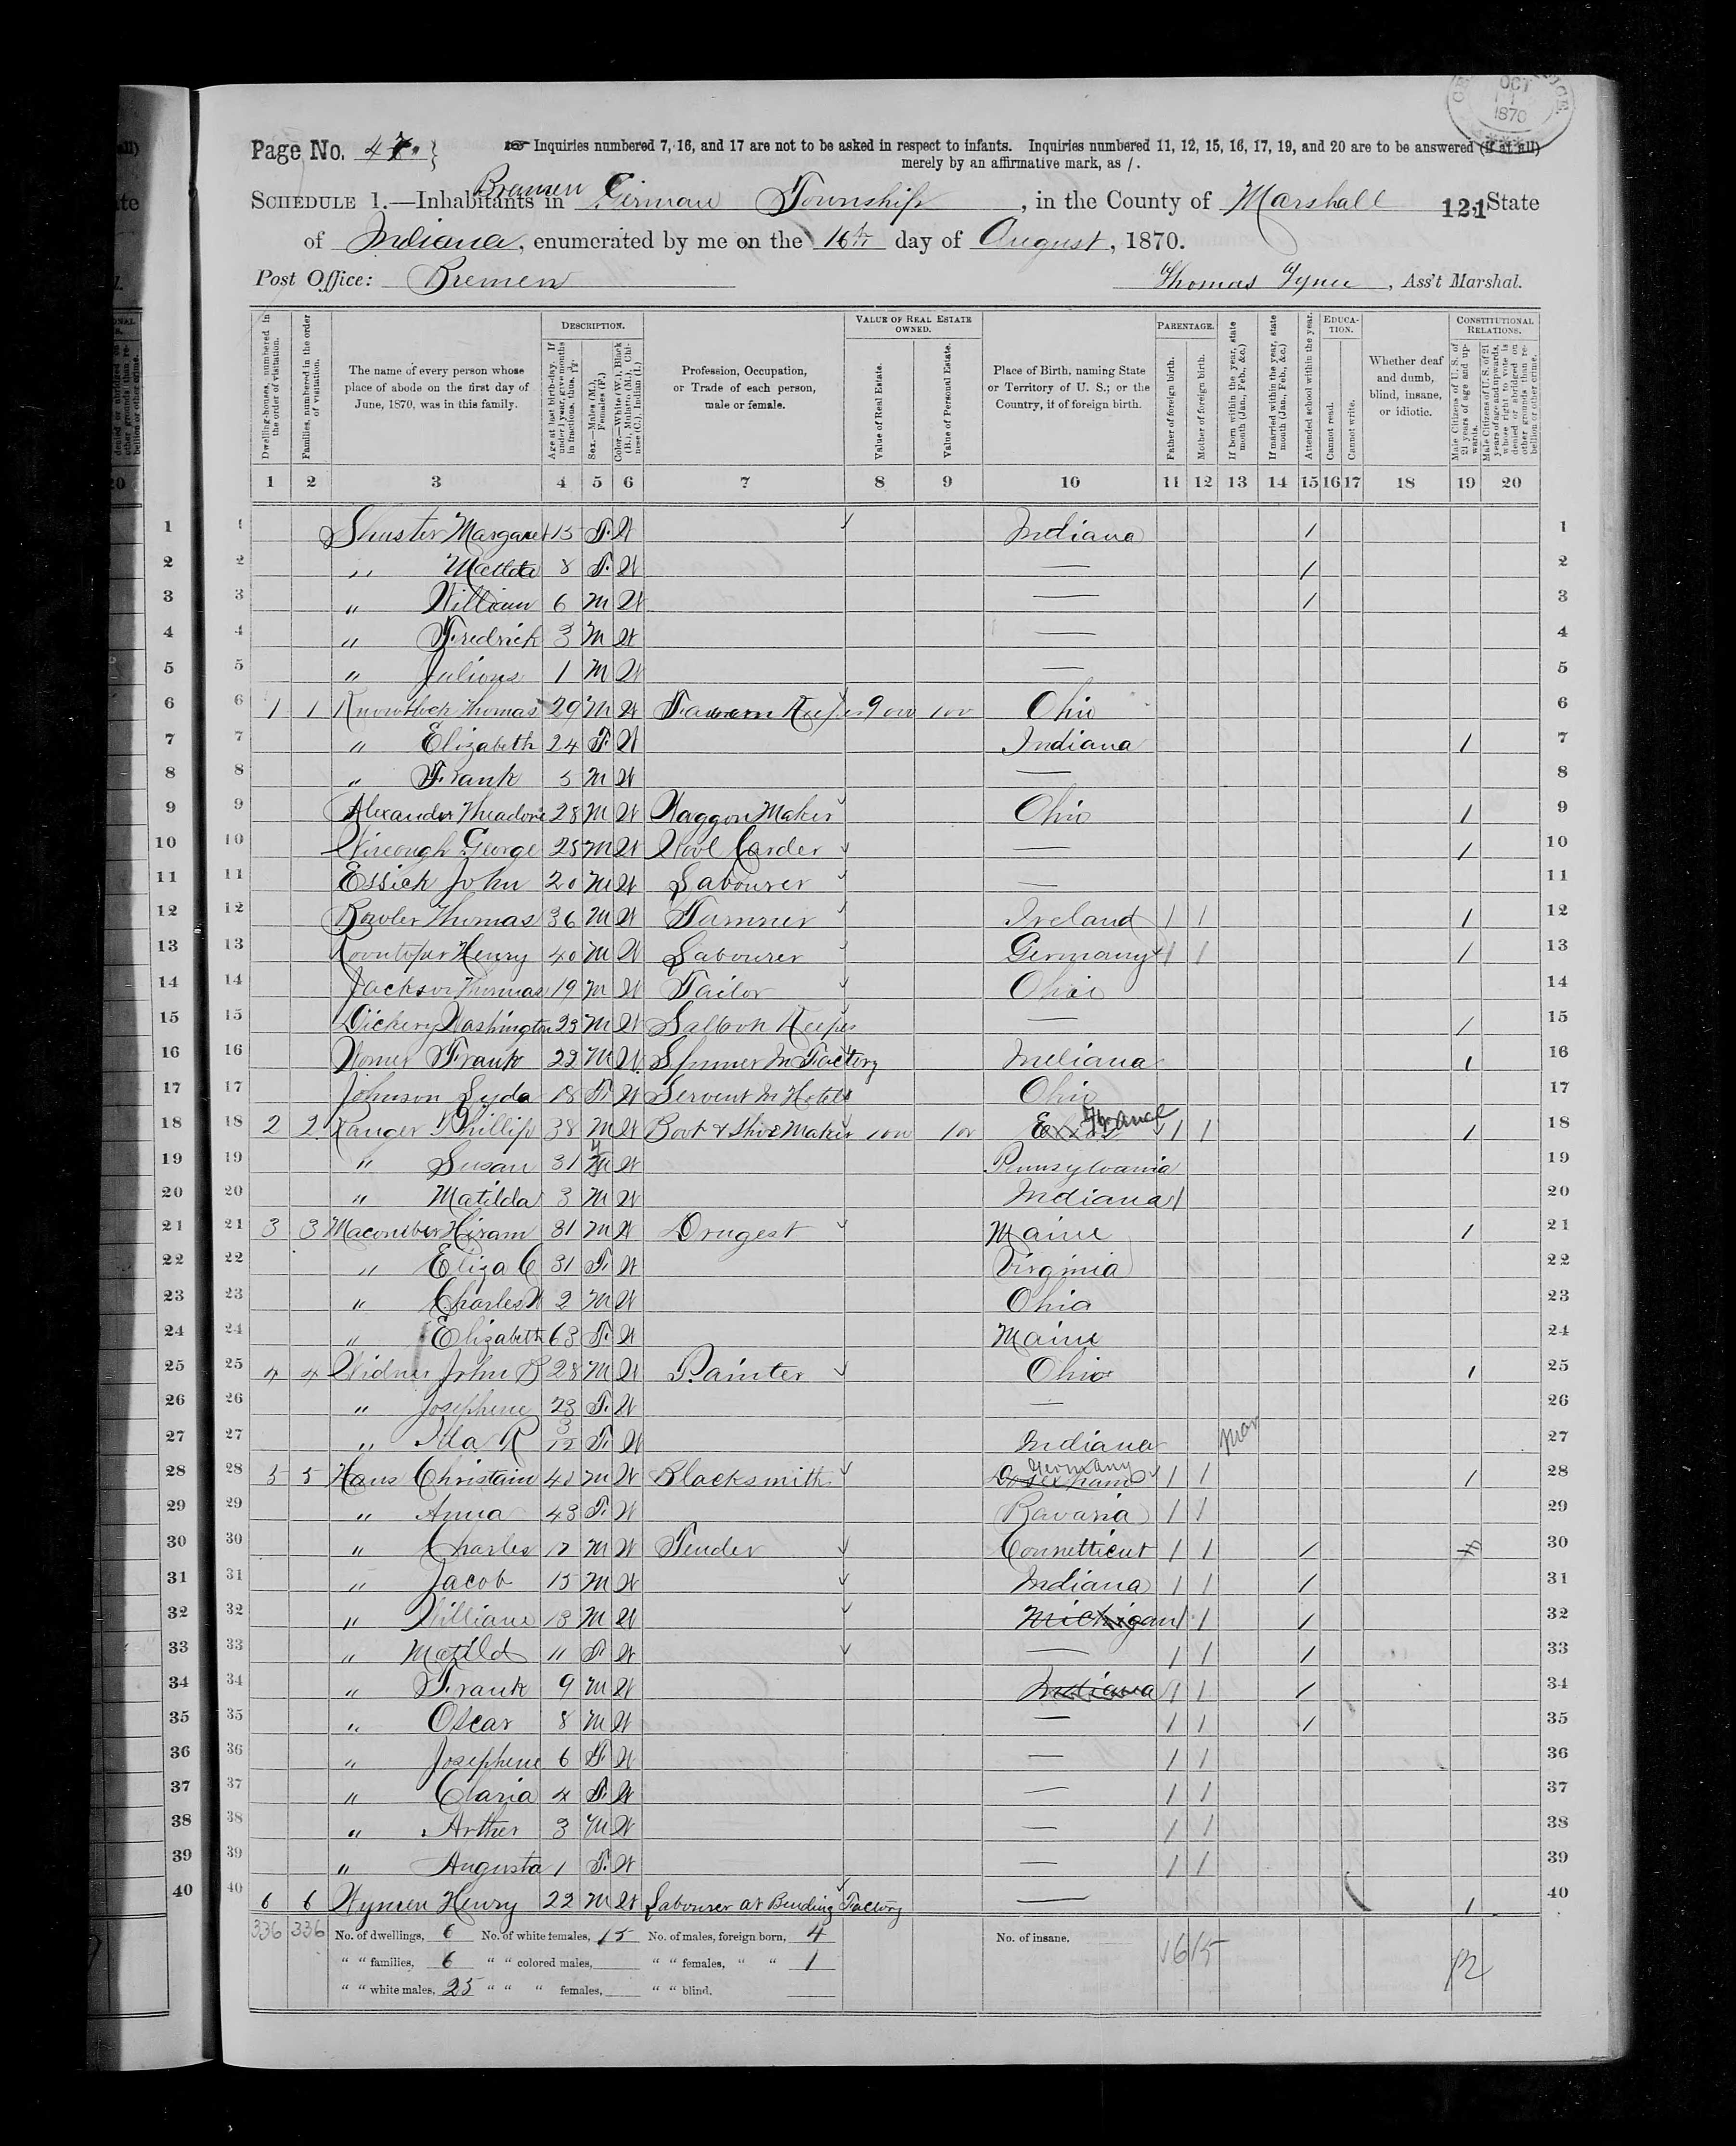 OCT
1870
Page No. 47
Inquiries numbered 7, 16, and 17 are not to be asked in respect to infants. Inquiries numbered 11, 12, 15, 16, 17, 19, and 20 are to be answered (if at all)
merely by an affirmative mark, as /.
Bremen
SCHEDULE 1.—Inhabitants in German Township, in the County of Marshall 121, State
of Indiana, enumerated by me on the 16th day of August, 1870.
Post Office: Bremen
Thomas Tyner, Ass't Marshal.
Dwelling-houses, numbered in the order of visitation.
Families, numbered in the order of visitation.
The name of every person whose place of abode on the first day of June, 1870, was in this family.
DESCRIPTION.
Age at last birth-day. If under 1 year, give months in fractions, thus, 3/12
Sex.—Males (M.), Females (F.)
Color.—White (W.), Black (B.), Mulatto (M.), Chinese (C.), Indian (I.)
Profession, Occupation, or Trade of each person, male or female.
VALUE OF REAL ESTATE OWNED.
Value of Real Estate.
Value of Personal Estate.
Place of Birth, naming State or Territory of U. S.; or the Country, if of foreign birth.
PARENTAGE.
Father of foreign birth.
Mother of foreign birth.
If born within the year, state month (Jan., Feb., &c.)
If married within the year, state month (Jan., Feb., &c.)
Attended school within the year.
EDUCATION.
Cannot read.
Cannot write.
Whether deaf and dumb, blind, insane, or idiotic.
CONSTITUTIONAL RELATIONS.
Male Citizens of U. S. of 21 years of age and upwards.
Male Citizens of U. S. of 21 years of age and upwards, whose right to vote is denied or abridged on other grounds than rebellion or other crime.
1 2 3 4 5 6 7 8 9 10 11 12 13 14 15 16 17 18 19 20
1 Shuster Margaret 15 F W Indiana / 1
2 " Matilda 8 F W — / 2
3 " William 6 M W — / 3
4 " Fredrick 3 M W — 4
5 " 1 M W — 5
6 1 1 Thomas 29 M W Tavern Keeper 900 100 Ohio 6
7 " Elizabeth 24 F W Indiana / 7
8 " Frank 5 M W — 8
9 Alexander Theadore 28 M W Waggon Maker Ohio / 9
10 George 25 M W Wool Carder — / 10
11 Essick John 20 M W Labourer — 11
12 Thomas 36 M W Ireland / / / 12
13 Henry 40 M W Labourer Germany / / / 13
14 Jackson Thomas 19 M W Tailor Ohio 14
15 Washington 23 M W Saloon Keeper — / 15
16 Frank 22 M W Spinner In Factory Indiana / 16
17 Johnson Lyda 18 F W Servent In Hotel Ohio 17
18 2 2 Phillip 38 M W Boot & Shoe Maker 1000 100 France / / / 18
19 " Susan 31 F W Pennsylvania 19
20 " Matilda 3 M W Indiana / 20
21 3 3 Macomber Hiram 31 M W Drugest Maine / 21
22 " Eliza C 31 F W Virginia 22
23 " Charles W 2 M W Ohio 23
24 " Elizabeth 63 F W Maine 24
25 4 4 Widner John B 28 M W Painter Ohio / 25
26 " Josephene 23 F W — 26
27 " Ida R 3/12 F W Indiana Mar 27
28 5 5 Haus Christain M W Blacksmith Germany / / / 28
29 " Anna 43 F W Bavaria / / 29
30 " Charles 17 M W Tender Connetticut / / / 30
31 " Jacob 15 M W Indiana / / / 31
32 " William 13 M W Michigan / / / 32
33 " Matild 11 F W — / / / 33
34 " Frank 9 M W Indiana / / / 34
35 " Oscar 8 M W — / / / 35
36 " Josephene 6 F W — / / 36
37 " Claria 4 F W — / / 37
38 " Arther 3 M W — / / 38
39 " Augusta 1 F W — / / 39
40 6 6 Henry 22 M W Labourer at Bending Factory — / 40
336 336 No. of dwellings, 6 No. of white females, 15 No. of males, foreign born, 4 No. of insane. 16 15 12
" " families, 6 " " colored males, " " females, " " 1
" " white males, 25 " " " females, " " blind.